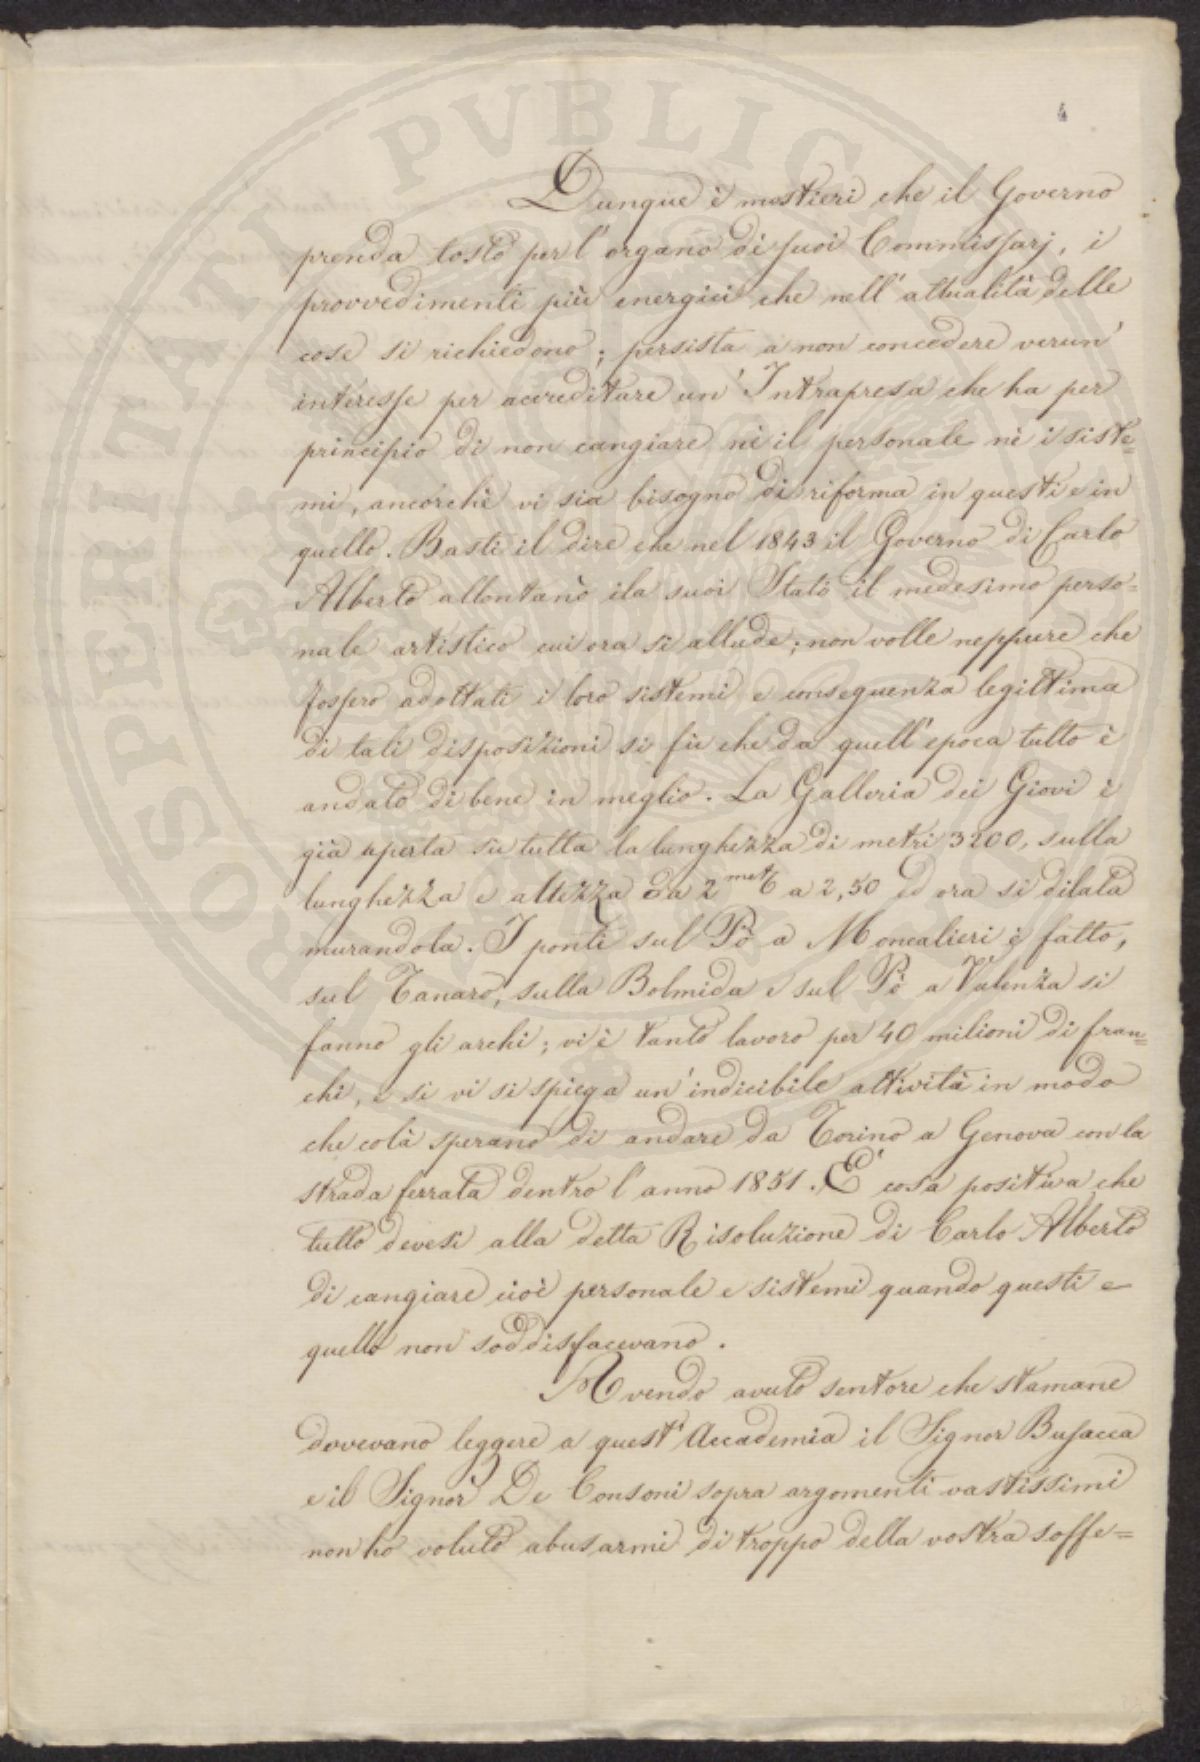 4
Dunque è mestieri che il Governo
prenda tosto per l'organo di suoi Commissarj, i
provvedimenti più energici che nell'attualità delle
cose si richiedono; persista a non concedere verun'
interesse per accreditare un'Intrapresa che ha per
principio di non cangiare nè il personale nè i siste=
mi, ancorchè vi sia bisogno di riforma in questi e in
quello. Basti il dire che nel 1843 il Governo di Carlo
Alberto allontanò da suoi Stati il medesimo perso=
nale artistico cui ora si allude; non volle neppure che
fossero adottati i loro sistemi e conseguenza legittima
di tali disposizioni si fù che da quell'epoca tutto è
andato di bene in meglio. La Galleria dei Giovi è
già aperta su tutta la lunghezza di metri 3200, sulla
lunghezza e altezza da 2 met a 2,50 ed ora si dilata
murandola. I ponti sul Pò a Moncalieri è fatto,
sul Tanaro, sulla Bolmida e sul Pò a Valenza si
fanno gli archi; vi è tanto lavoro per 40 milioni di fran=
chi, e si vi si spiega un'indicibile attività in modo
che colà sperano di andare da Torino a Genova con la
strada ferrata dentro l'anno 1851. È cosa positiva che
tutto devesi alla detta Risoluzione di Carlo Alberto
di cangiare cioè personale e sistemi quando questi e
quello non soddisfacevano.
Avendo avuto sentore che stamane
dovevano leggere a quest'Accademia il Signor Busacca
e il Signor De Consoni sopra argomenti vastissimi
non ho voluto abusarmi di troppo della vostra soffe=
PROSPERITATI PVBLICAE